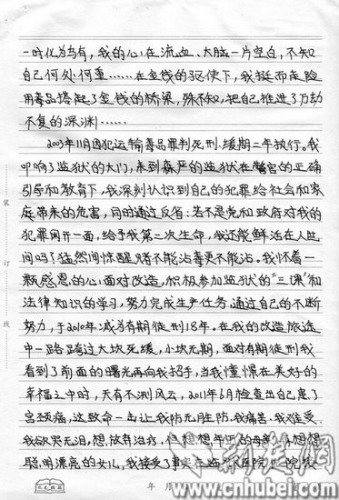 一时化为乌有，我的心在流血、大脑一片空白，不知
自己何处何重……在金钱的驱使下，我铤而走险
用毒品搭起了金钱的桥梁，殊不知，把自己推进了万劫
不复的深渊……
2003年11月因犯运输毒品罪判死刑，缓期二年执行。我
叩响了监狱的大门，来到森严的监狱在警官的正确
引导和教育下，我深刻认识到自己的犯罪给社会和家
庭带来的危害，同时通过反省：若不是党和政府对我的
犯罪网开一面，给予我第二次生命，我还能鲜活在人世
间吗？猛然间惊醒，赌不能沾毒更不能沾。我怀着一
颗感恩的心，面对改造，积极参加监狱的“三课”和
法律知识的学习，努力完成生产任务，通过自己的不断
努力，于2010年减为有期徒刑18年，在我的改造旅途
中一路跨过大坎死缓，小坎无期，面对有期徒刑我
看到了前面的曙光再向我招手，当我憧憬在美好的
幸福之中时，天有不测风云，2011年6月检查出自己患了
宫颈癌，这致命一击让我防不胜防，我痛苦，我难受，
我欲哭无泪，想放弃治疗，但想想年的母亲，想想
聪明漂亮的女儿，我接受了监狱医院
装
订
线
年 月
荆楚网
www.cnhubei.com